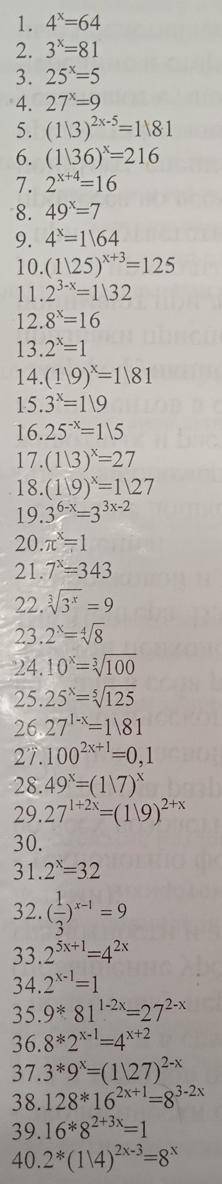 1. 4^x=64
2. 3^x=81
3. 25^x=5
4. 27^x=9
5. (1\3)^{2x-5}=1\81
6. (1\36)^x=216
7. 2^{x+4}=16
8. 49^x=7
9. 4^x=1\64
10.(1\25)^{x+3}=125
11.2^{3-x}=1\32
12.8^x=16
13.2^x=1
14.(1\9)^x=1\81
15.3^x=1\9
16.25^{-x}=1\5
17.(1\3)^x=27
18.(1\9)^x=1\27
19.3^{6-x}=3^{3x-2}
20.π^x=1
21.7^x=343
22.∛(3^x) = 9
23.2^x=∜8
24.10^x=∛100
25.25^x=⁵√125
26.27^{1-x}=1\81
27.100^{2x+1}=0,1
28.49^x=(1\7)^x
29.27^{1+2x}=(1\9)^{2+x}
30.
31.2^x=32
32.(1/3)^{x-1} = 9
33.2^{5x+1}=4^{2x}
34.2^{x-1}=1
35.9* 81^{1-2x}=27^{2-x}
36.8*2^{x-1}=4^{x+2}
37.3*9^x=(1\27)^{2-x}
38.128*16^{2x+1}=8^{3-2x}
39.16*8^{2+3x}=1
40.2*(1\4)^{2x-3}=8^x